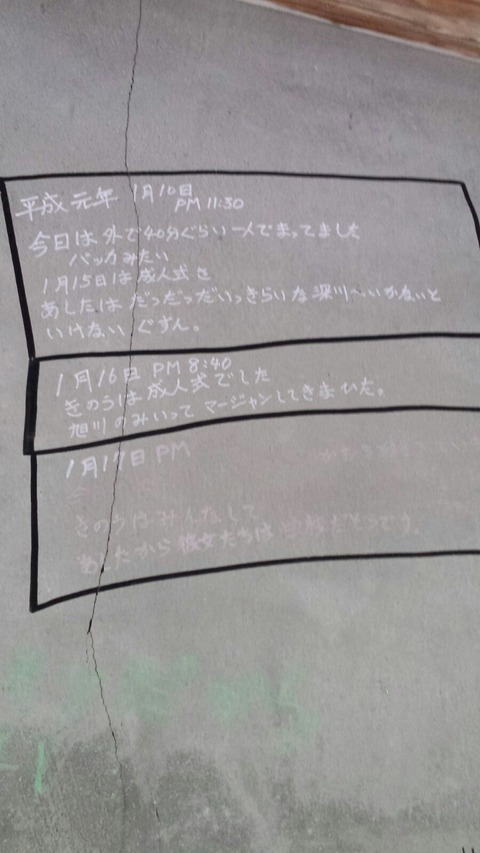 平成元年 1月10日
PM 11:30
今日は外で40分ぐらい一人でまってました
バッカみたい
1月15日は成人式さ
あしたはだっだっだいっきらいな深川へいかないと
いけない ぐすん。
1月16日 PM 8:40
きのうは成人式でした
旭川のみいって マージャンしてきました。
1月17日 PM
きのうはみんなして
あしたから彼女たちは だそうです。